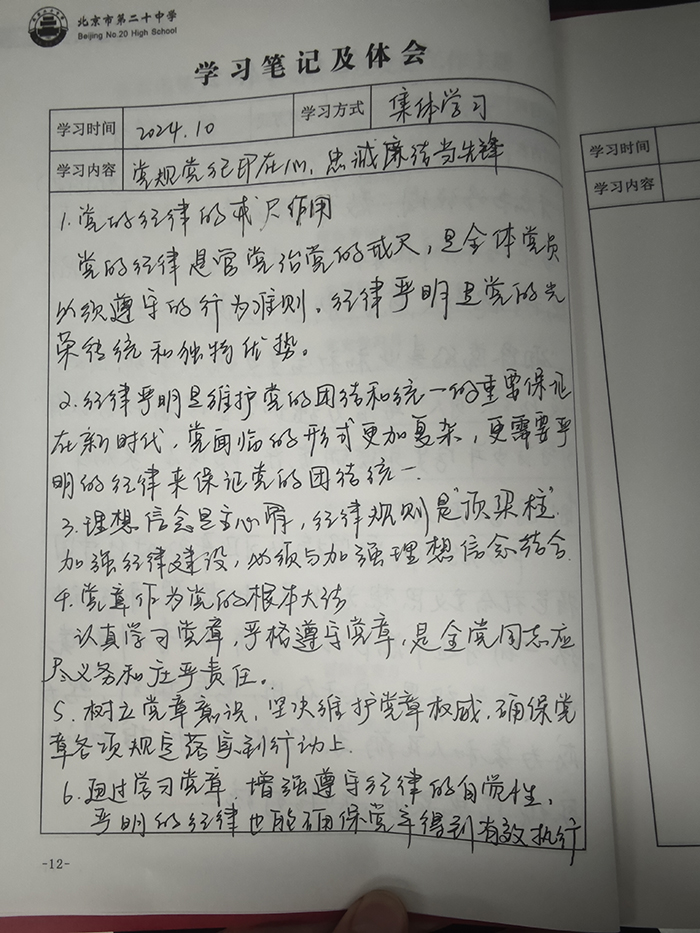 北京市第二十中学
Beijing No.20 High School
学习笔记及体会
学习时间 2024.10 学习方式 集体学习
学习内容 党规党纪印在心、忠诚廉洁当先锋
1.党的纪律的戒尺作用
党的纪律是管党治党的戒尺，是全体党员
必须遵守的行为准则。纪律严明是党的光
荣传统和独特优势。
2.纪律严明是维护党的团结和统一的重要保证
在新时代，党面临的形式更加复杂，更需要严
明的纪律来保证党的团结统一.
3.理想信念是主心骨，纪律规则是"顶梁柱".
加强纪律建设，必须与加强理想信念结合.
4.党章作为党的根本大法
认真学习党章，严格遵守党章，是全党同志应
尽义务和庄严责任。
5.树立党章意识，坚决维护党章权威，确保党
章各项规定落实到行动上.
6.通过学习党章，增强遵守纪律的自觉性、
严明的纪律也能确保党章得到有效执行
-12-
学习时间
学习内容